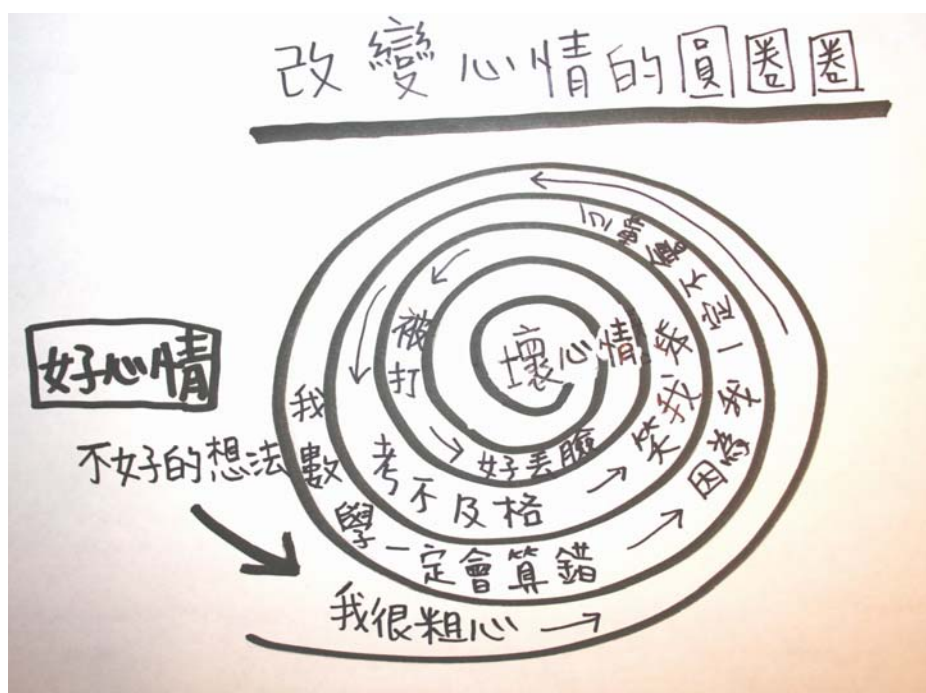 改變心情的圓圈圈
好心情
不好的想法
我很粗心→
我數學一定會算錯→
因為我一定不會專心
考不及格→
笑我笨
被打→
好丟臉
壞心情